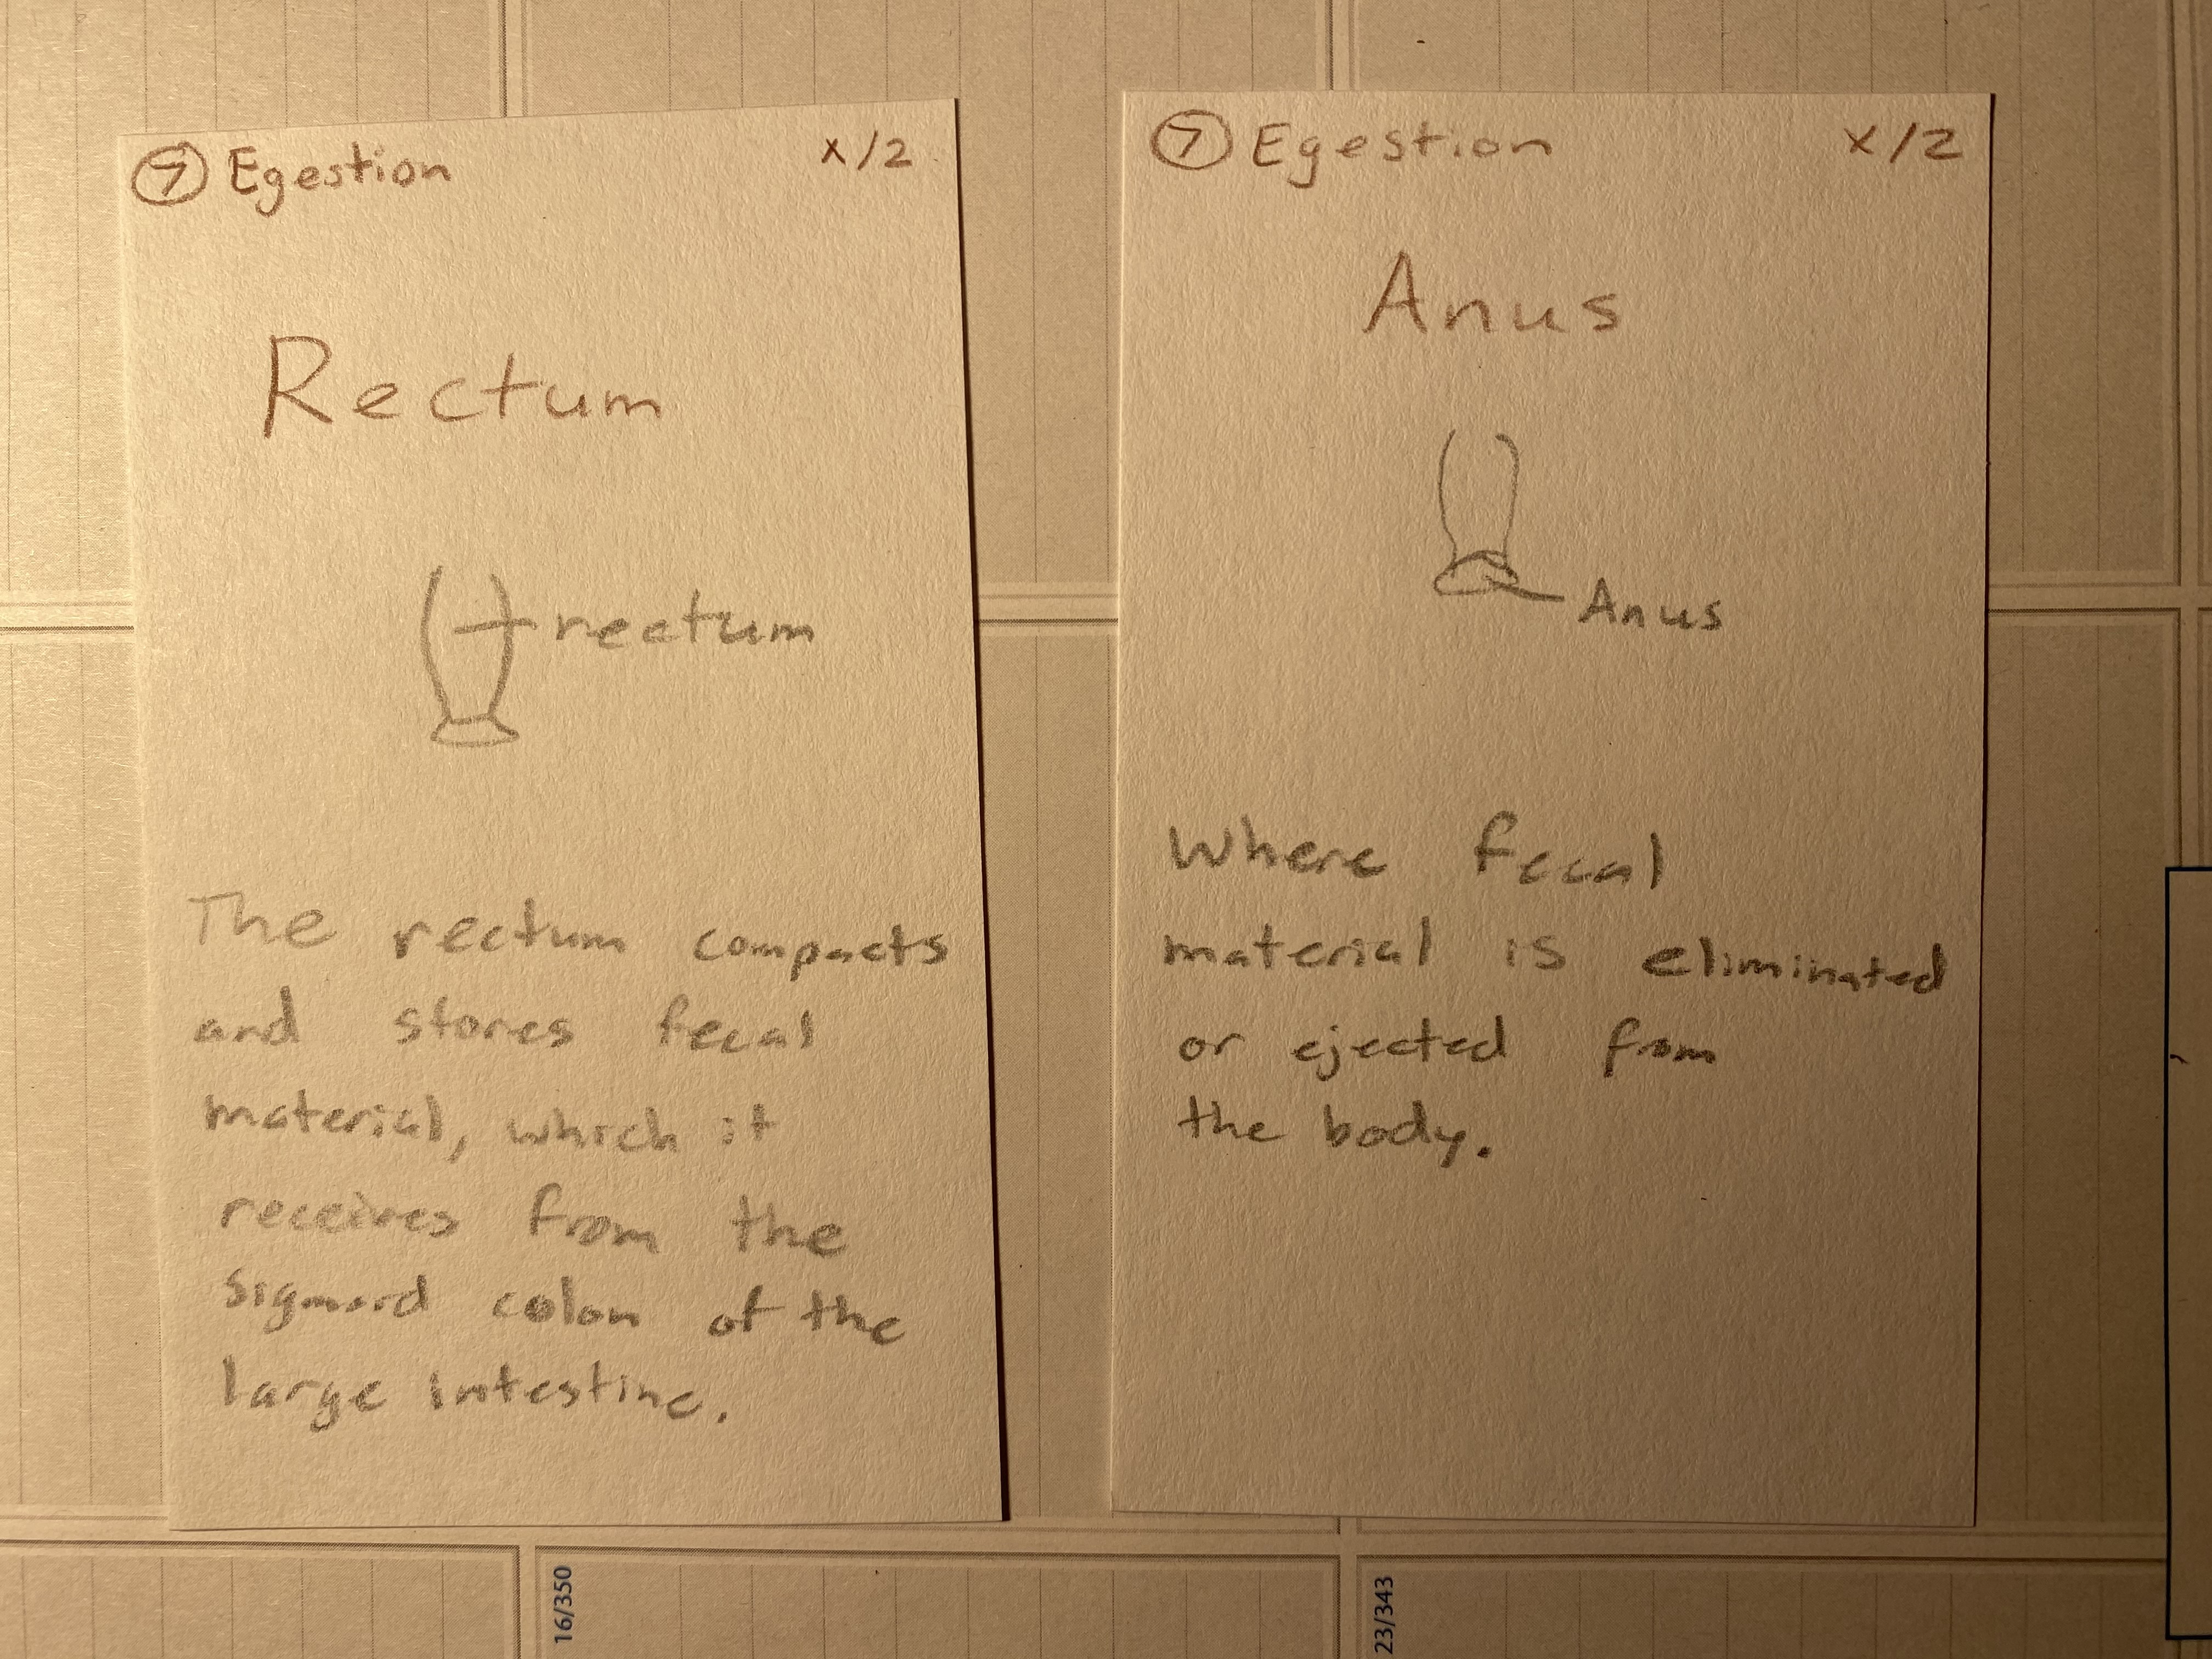 ⑦ Egestion x/2
Rectum
rectum
The rectum compacts
and stores fecal
material, which it
receives from the
sigmoid colon of the
large intestine.
⑦ Egestion x/2
Anus
Anus
Where fecal
material is eliminated
or ejected from
the body.
16/350
23/343